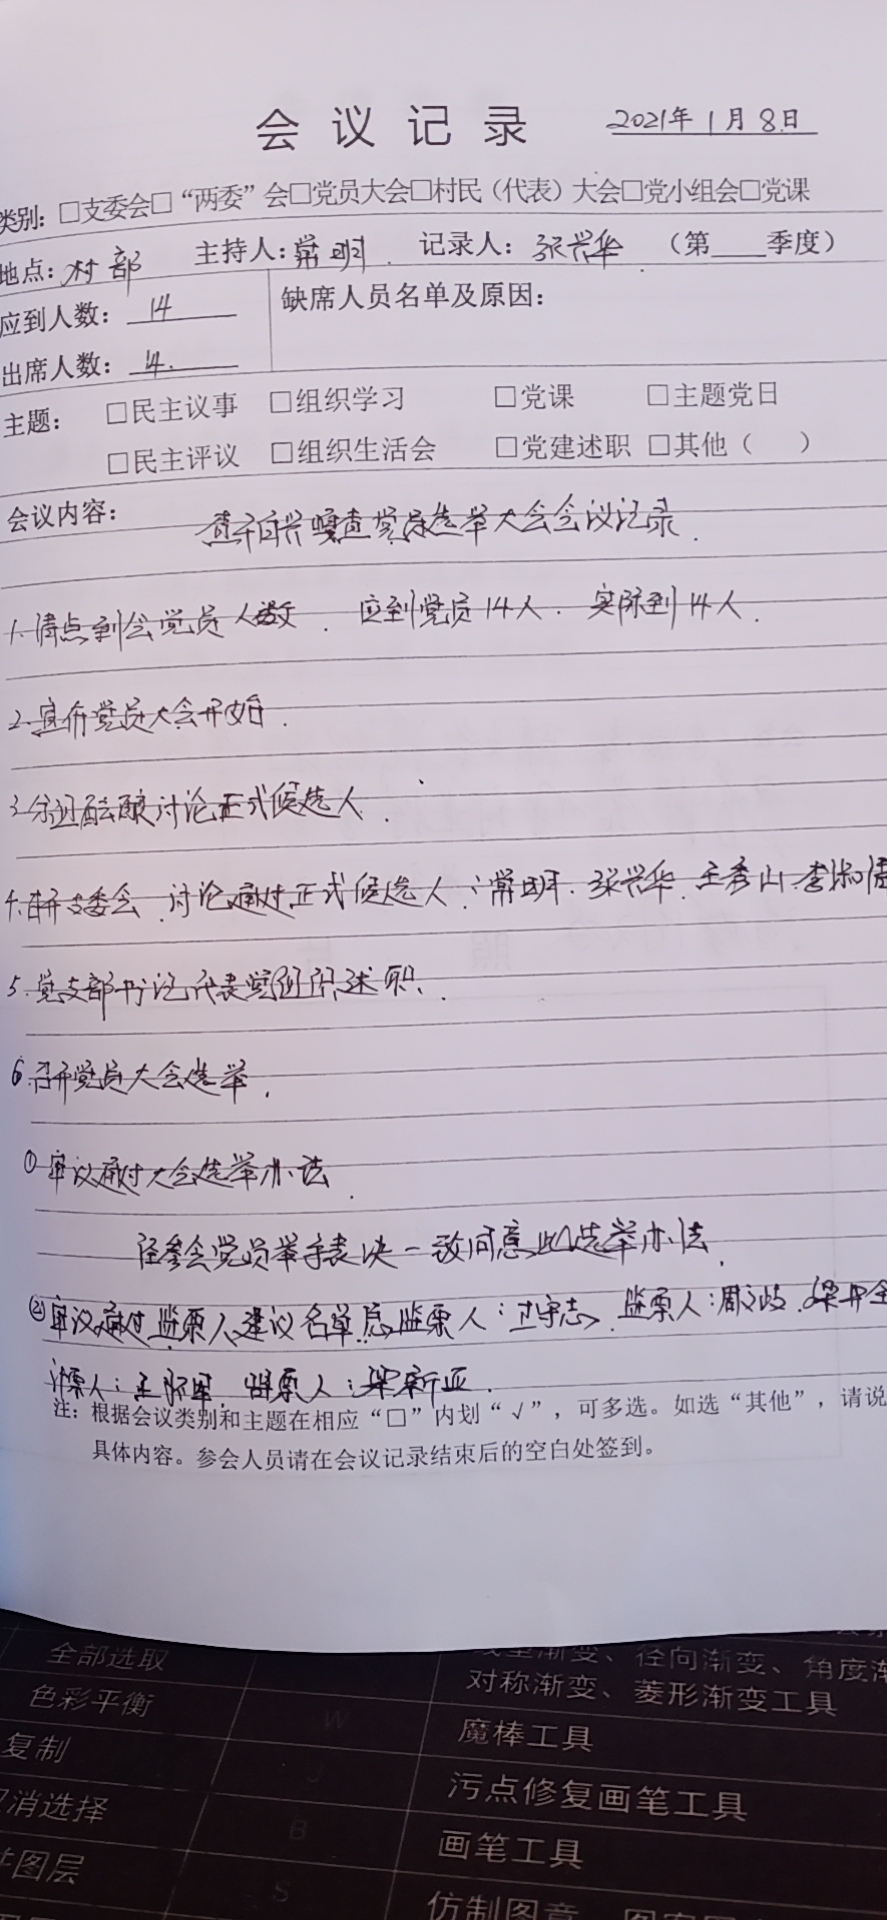 会议记录 2021年1月8日
类别：□支委会□“两委”会□党员大会□村民（代表）大会□党小组会□党课
地点：村部 主持人：常明 记录人：张兴华 （第 季度）
应到人数：14 缺席人员名单及原因：
出席人数：14.
主题： □民主议事 □组织学习 □党课 □主题党日
□民主评议 □组织生活会 □党建述职 □其他（ ）
会议内容：
党员选举大会会议记录.
1.清点到会党员人数. 应到党员14人. 实际到14人.
2.宣布党员大会开始.
3.分组酝酿讨论正式候选人.
4.召开支委会,讨论通过正式候选人:常明.张兴华.王秀山.李淑清
5.党支部书记代表党组织述职.
6.召开党员大会选举.
①审议通过大会选举办法.
经参会党员举手表决一致同意此选举办法.
②审议通过监票人建议名单总监票人:卫守志, 监票人:周文岐.梁
计票人:王 唱票人:梁新亚.
注：根据会议类别和主题在相应“□”内划“√”，可多选。如选“其他”，请说
具体内容。参会人员请在会议记录结束后的空白处签到。
全部选取
渐变、径向渐变、角度渐
对称渐变、菱形渐变工具
色彩平衡 W 魔棒工具
复制 J 污点修复画笔工具
消选择 B 画笔工具
图层 S 仿制图章